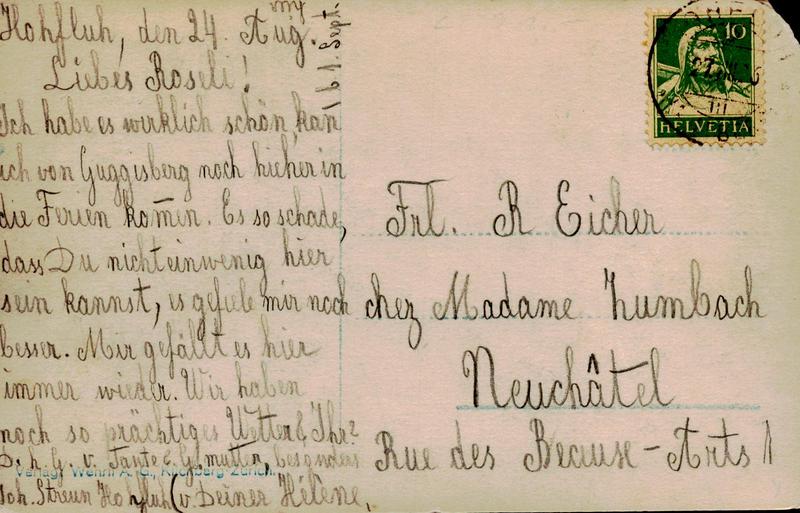 Hohfluh, den 24. Aug.
Liebes Roseli!
Ich habe es wirklich schön, kan
ich von Guggisberg noch hieher in
die Ferien kom̄en. Es so schade,
dass Du nicht einwenig hier
sein kannst, es gefiele mir noch
besser. Mir gefällt es hier
immer wieder. Wir haben
noch so prächtiges Wetter & Ihr?
v. Tante & Gr.mutter, besonders
Joh. Streun Hohfluh (v. Deiner Hélène,
Sept.
10
HELVETIA
Frl. R Eicher
chez Madame Zumbach
Neuchâtel
Rue des Beause-Arts 1
Verlag: Wehrli A. G., Kilchberg Zürich